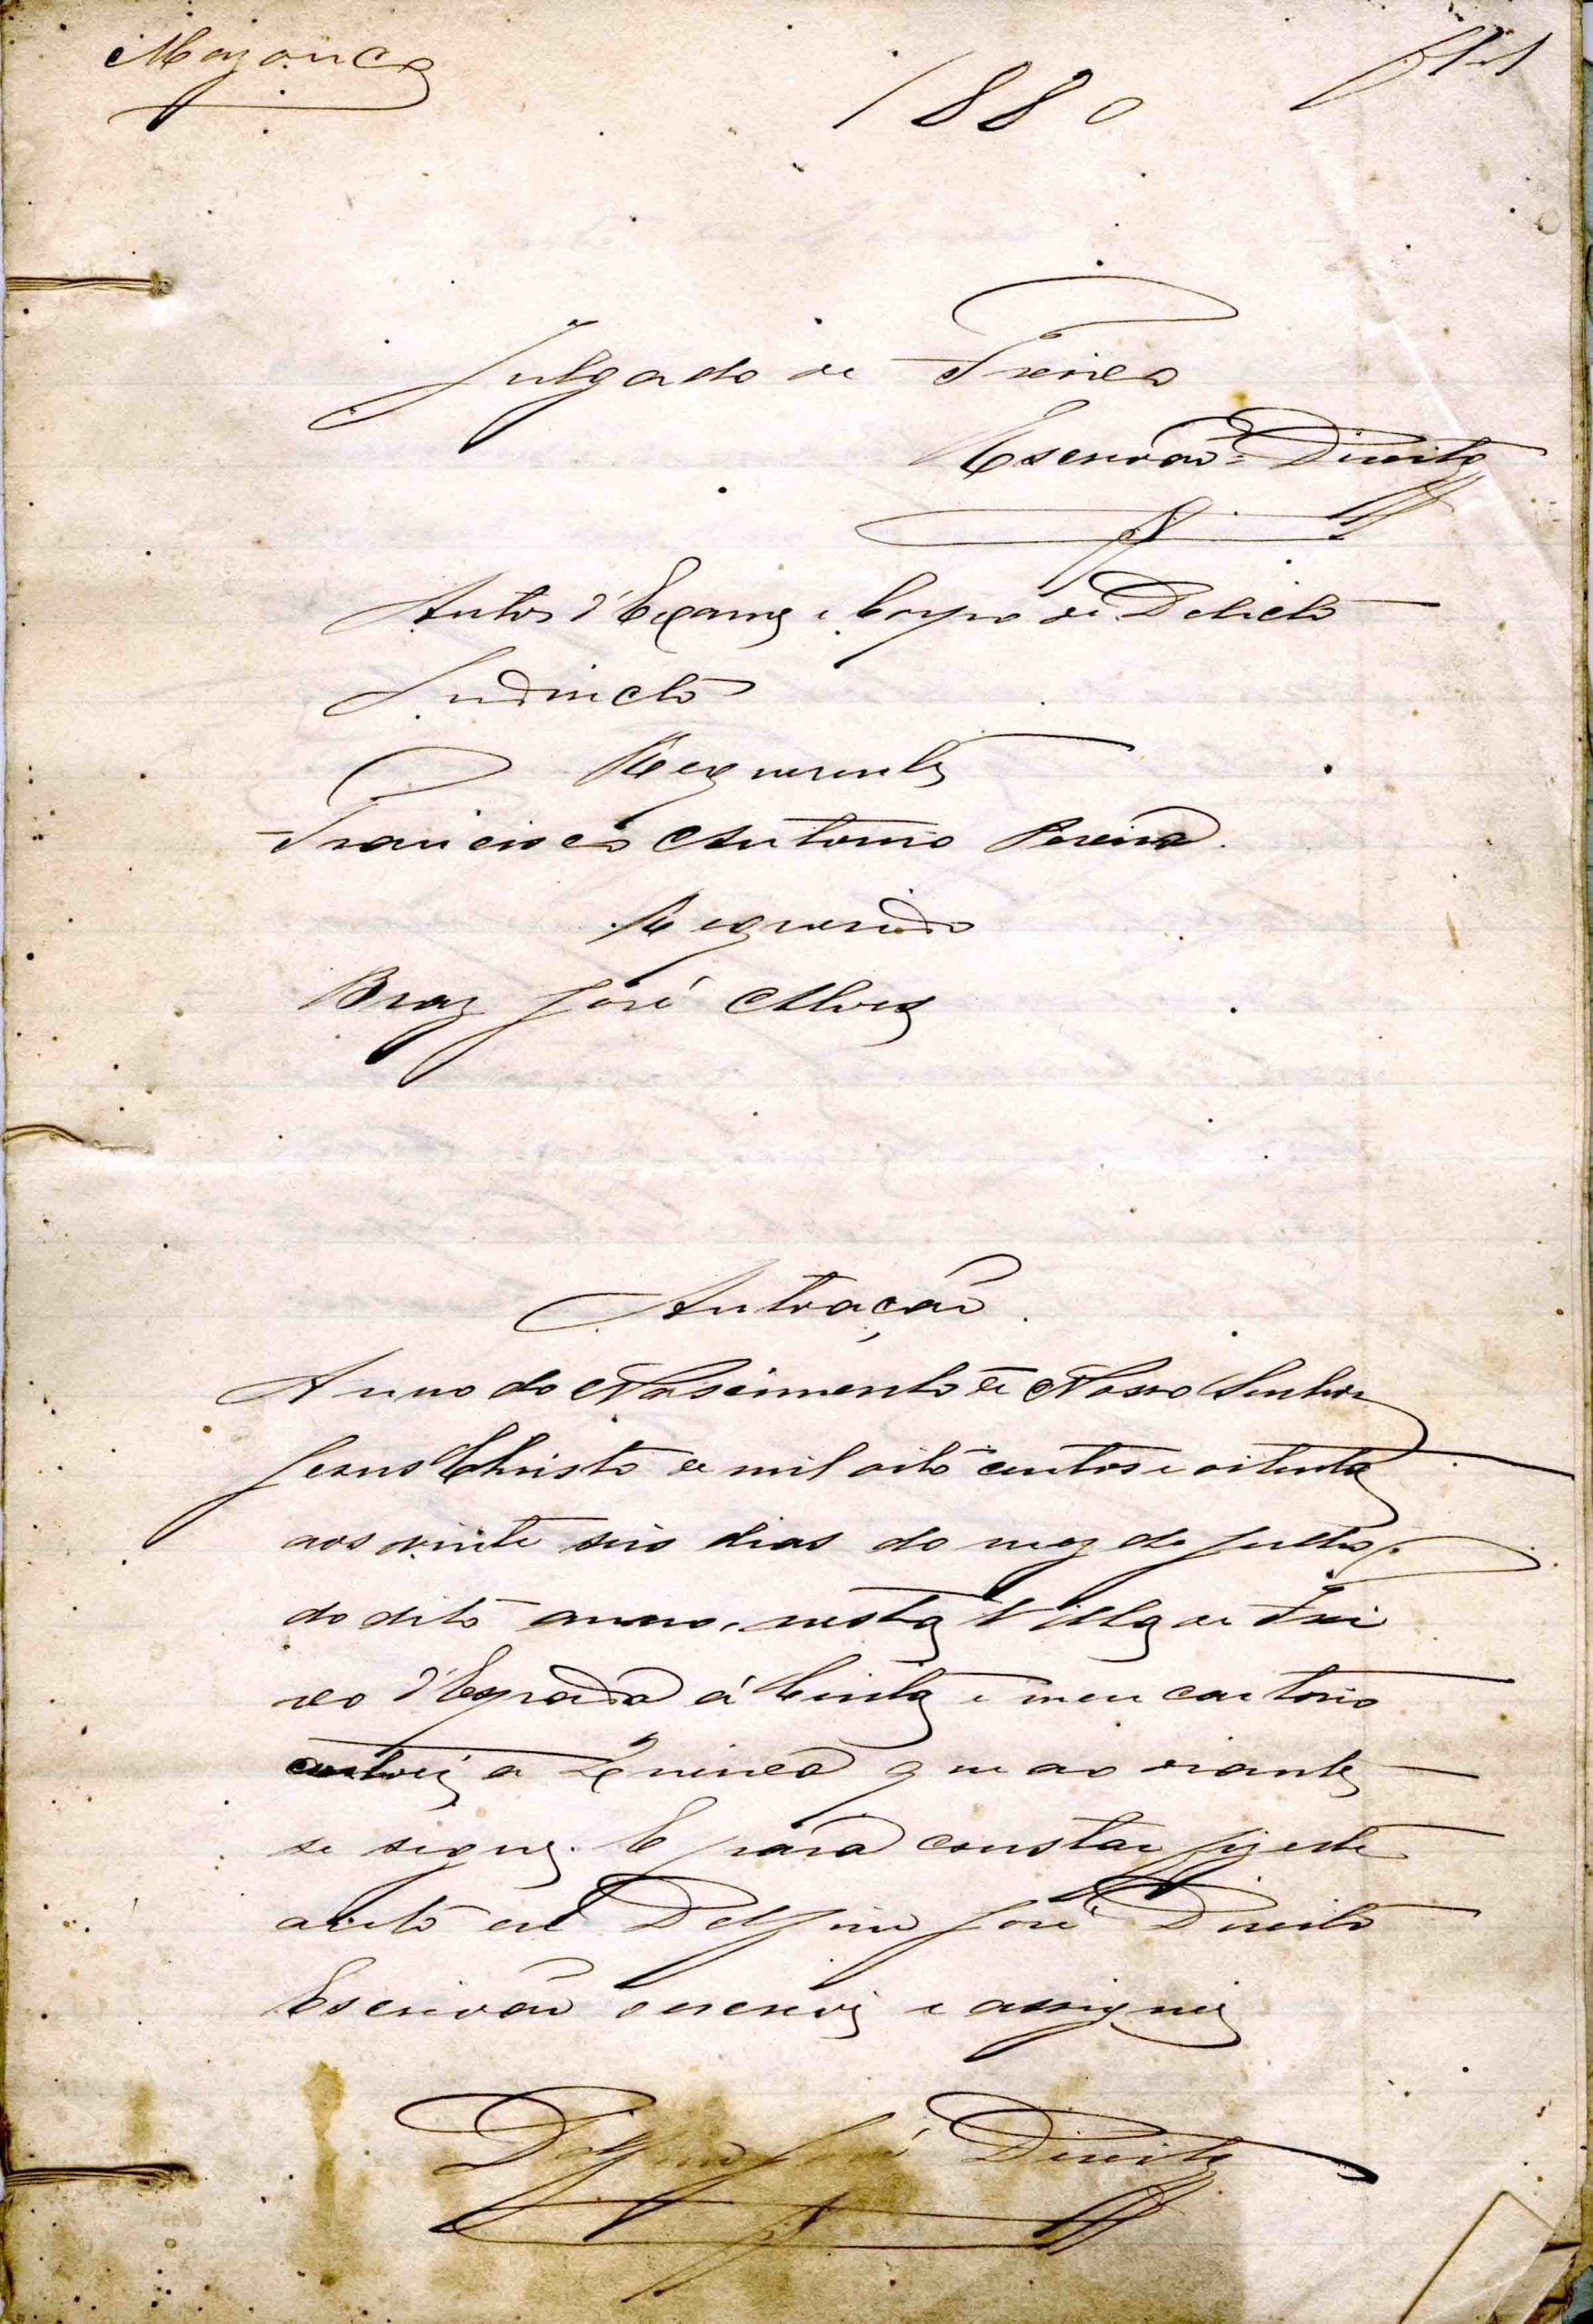 1880
fl 1
Julgado de Freixo
Escrivão = Direito
Autos d'Exame e Corpo de Delicto
Indirecto
Requerente
Francisco Antonio Pereira.
Requerido
Braz José Alves
Autoação.
Anno do Nascimento de Nosso Senhor
Jesus Christo de mil oito centos e oitenta
aos vinte seis dias do mez de Julho
do dito anno, nesta Villa de Frei
xo d'Espada á Cinta e meu cartorio
autoei a que ao diante
se segue. E para constar fiz este
auto eu Delfim José Direito
Escrivão o escrevi e assignei
Delfim José Direito